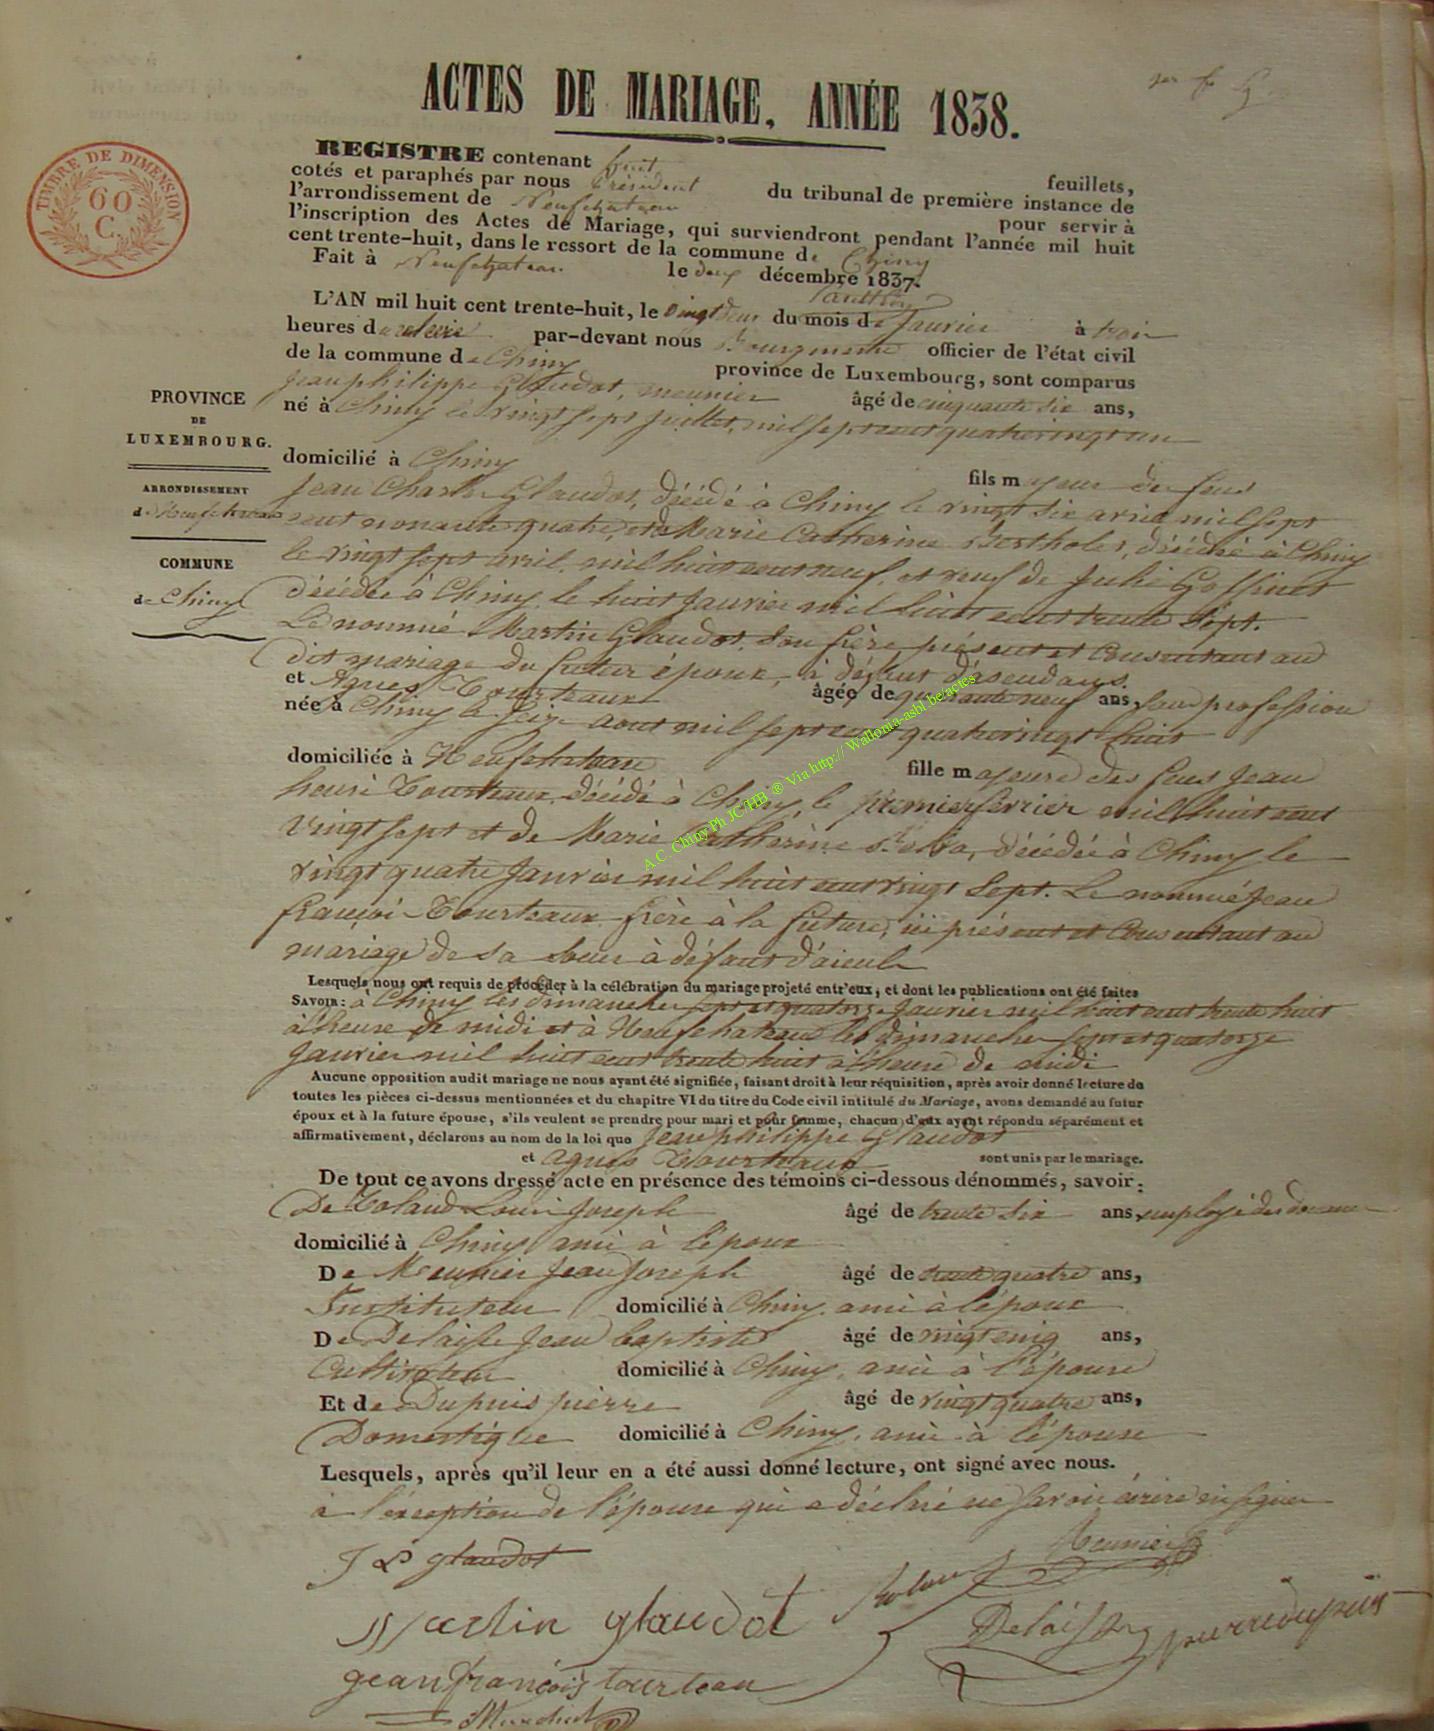 ACTES DE MARIAGE, ANNÉE 1838.
TIMBRE DE DIMENSION
60
C.
REGISTRE contenant huit feuillets,
cotés et paraphés par nous Président du tribunal de première instance de
l'arrondissement de Neufchateau pour servir à
l'inscription des Actes de Mariage, qui surviendront pendant l'année mil huit
cent trente-huit, dans le ressort de la commune de Chiny
Fait à Neufchateau le deux décembre 1837.
L'AN mil huit cent trente-huit, le vingt deux du mois de Janvier à trois
heures de relevée par-devant nous Bourgmestre officier de l'état civil
de la commune de Chiny province de Luxembourg, sont comparus
PROVINCE
DE
LUXEMBOURG.
ARRONDISSEMENT
de Neufchateau
COMMUNE
de Chiny
Jean philippe Glaudot, meunier âgé de cinquante six ans,
né à Chiny le vingt sept juillet, mil sept cent quatrevingt un
domicilié à Chiny fils majeur de feus
Jean Charles Glaudot, décédé à Chiny le vingt six avril mil sept
cent nonante quatre, et de Marie Catherine décédée à Chiny
le vingt sept avril, mil huit cent neuf, et veuf de Julie
décédée à Chiny, le huit Janvier mil huit cent trente sept.
Le nommé Martin Glaudot, son frère, présent et consentant au
dit mariage du futur époux, à défaut d'ascendans.
et Agnes Tourteaux âgée de quarante neuf ans, sans profession
née à Chiny le seize aout mil sept cent quatrevingt huit
domiciliée à Neufchateau fille majeure des feus Jean
henri Tourteaux, décédé à Chiny, le premier fevrier mil huit cent
vingt sept et de Marie Catherine décédée à Chiny le
vingt quatre Janvier mil huit cent vingt sept. Le nommé Jean
françois Tourteaux frère à la future, ici présent et consentant au
mariage de sa soeur à défaut d'aieuls
Lesquels nous ont requis de procéder à la célébration du mariage projeté entr'eux, et dont les publications ont été faites
SAVOIR: à Chiny les dimanches sept et quatorze Janvier mil huit cent trente huit
à l'heure de midi et à Neufchateau les dimanches sept et quatorze
Janvier mil huit cent trente huit à l'heure de midi
Aucune opposition audit mariage ne nous ayant été signifiée, faisant droit à leur réquisition, après avoir donné lecture de
toutes les pièces ci-dessus mentionnées et du chapitre VI du titre du Code civil intitulé du Mariage, avons demandé au futur
époux et à la future épouse, s'ils veulent se prendre pour mari et pour femme, chacun d'eux ayant répondu séparément et
affirmativement, déclarons au nom de la loi que Jean philippe Glaudot
et agnes Tourteaux sont unis par le mariage.
De tout ce avons dressé acte en présence des témoins ci-dessous dénommés, savoir:
De Louis Joseph âgé de trente six ans, employé des douanes
domicilié à Chiny, ami à l'époux
De Meunier Jean Joseph âgé de trente quatre ans,
Instituteur domicilié à Chiny, ami à l'époux
De Delaisse Jean baptiste âgé de vingt cinq ans,
Cultivateur domicilié à Chiny, ami à l'épouse
Et de Dupuis pierre âgé de vingt quatre ans,
Domestique domicilié à Chiny, ami à l'épouse
Lesquels, après qu'il leur en a été aussi donné lecture, ont signé avec nous.
à l'exception de l'épouse qui a déclaré ne savoir écrire ni signer
J P glaudot
Meunier
Martin glaudot
Delaisse
pierre dupuis
jean françois tourteau
A.C. Chiny Ph JC/HB ® Via http:// Wallonia-asbl.be/actes